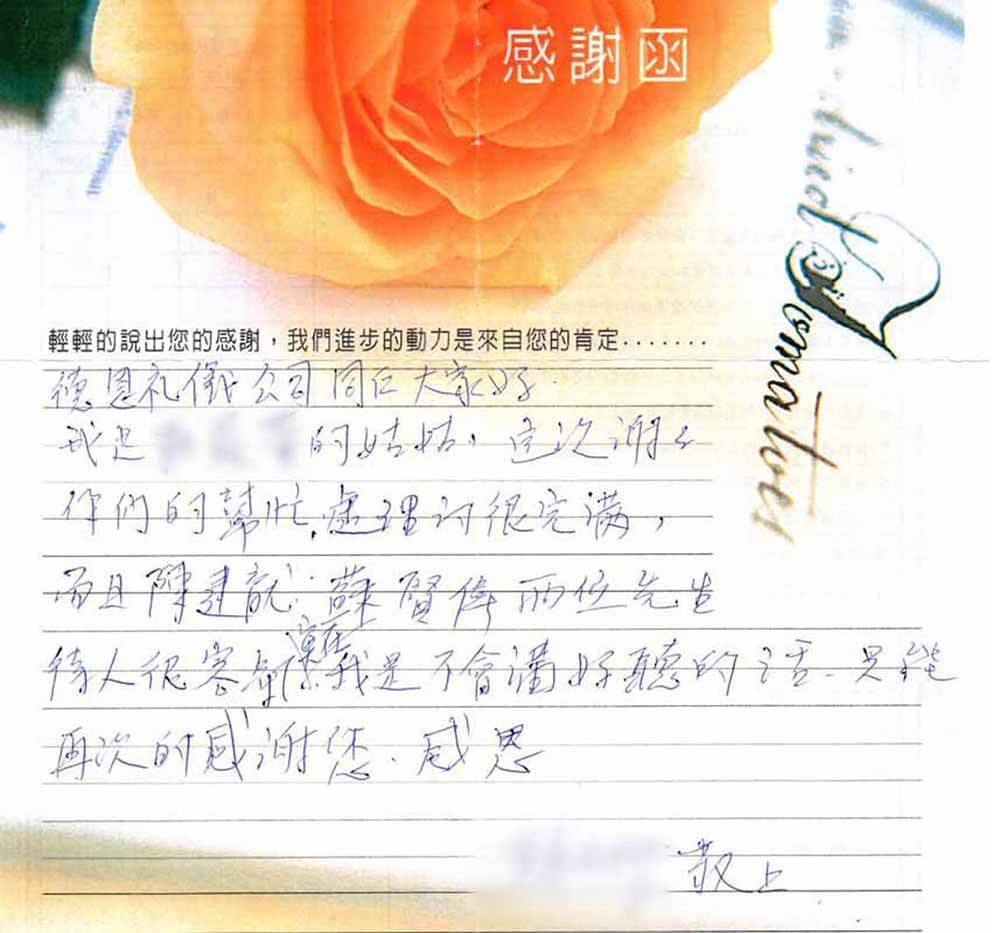 感謝函
輕輕的說出您的感謝,我們進步的動力是來自您的肯定.......
德恩礼儀公司同仁大家好.
我是 的姑姑,這次謝々
你們的幫忙,處理討很完滿,
而且陳建龍.蘇賢偉兩位先生
待人很客氣,實在我是不會講好聽的話.只能
再次的感謝您.感恩
敬上